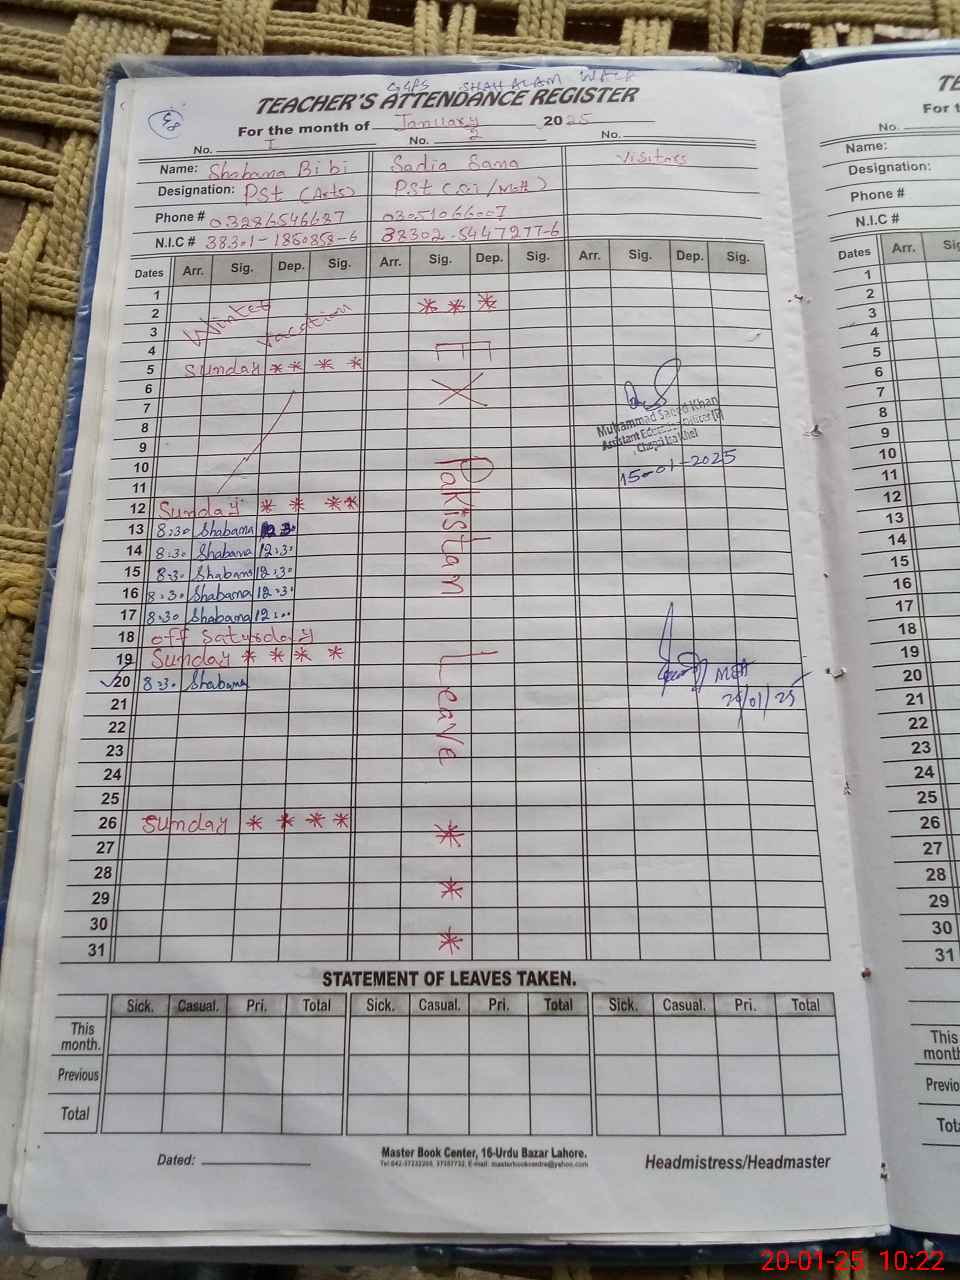 GGPS SHAH ALAM WALA
TEACHER'S ATTENDANCE REGISTER
For the month of January 2025
No. 1 No. 2 No.
Name: Shabana Bibi Sadia Sana Visitors
Designation: PST (Arts) PST (Sci/Math)
Phone # 03286546687 03051066007
N.I.C # 38301-1850858-6 38302-5447277-6
Dates Arr. Sig. Dep. Sig. Arr. Sig. Dep. Sig. Arr. Sig. Dep. Sig.
1
2 Winter * * *
3 vacation
4 E
5 Sunday * * * *
6 X
7
8 Muhammad Saeed Khan
9 Assistant Education Officer
10 Pakistan
11 15-01-2025
12 Sunday * * * *
13 8:30 Shabana 12:30
14 8:30 Shabana 12:30
15 8:30 Shabana 12:30
16 8:30 Shabana 12:30
17 8:30 Shabana 12:00
18 off Saturday
19 Sunday * * * *
20 8:30 Shabana Leave
21
22
23
24
25
26 Sunday * * * *
27 *
28
29 *
30
31 *
STATEMENT OF LEAVES TAKEN.
Sick. Casual. Pri. Total Sick. Casual. Pri. Total Sick. Casual. Pri. Total
This month.
Previous
Total
Dated:
Master Book Center, 16-Urdu Bazar Lahore.
Headmistress/Headmaster
For t
No.
Name:
Designation:
Phone #
N.I.C #
Dates Arr.
1
2
3
4
5
6
7
8
9
10
11
12
13
14
15
16
17
18
19
20
21
22
23
24
25
26
27
28
29
30
31
This
month
Previo
Tot
20-01-25 10:22